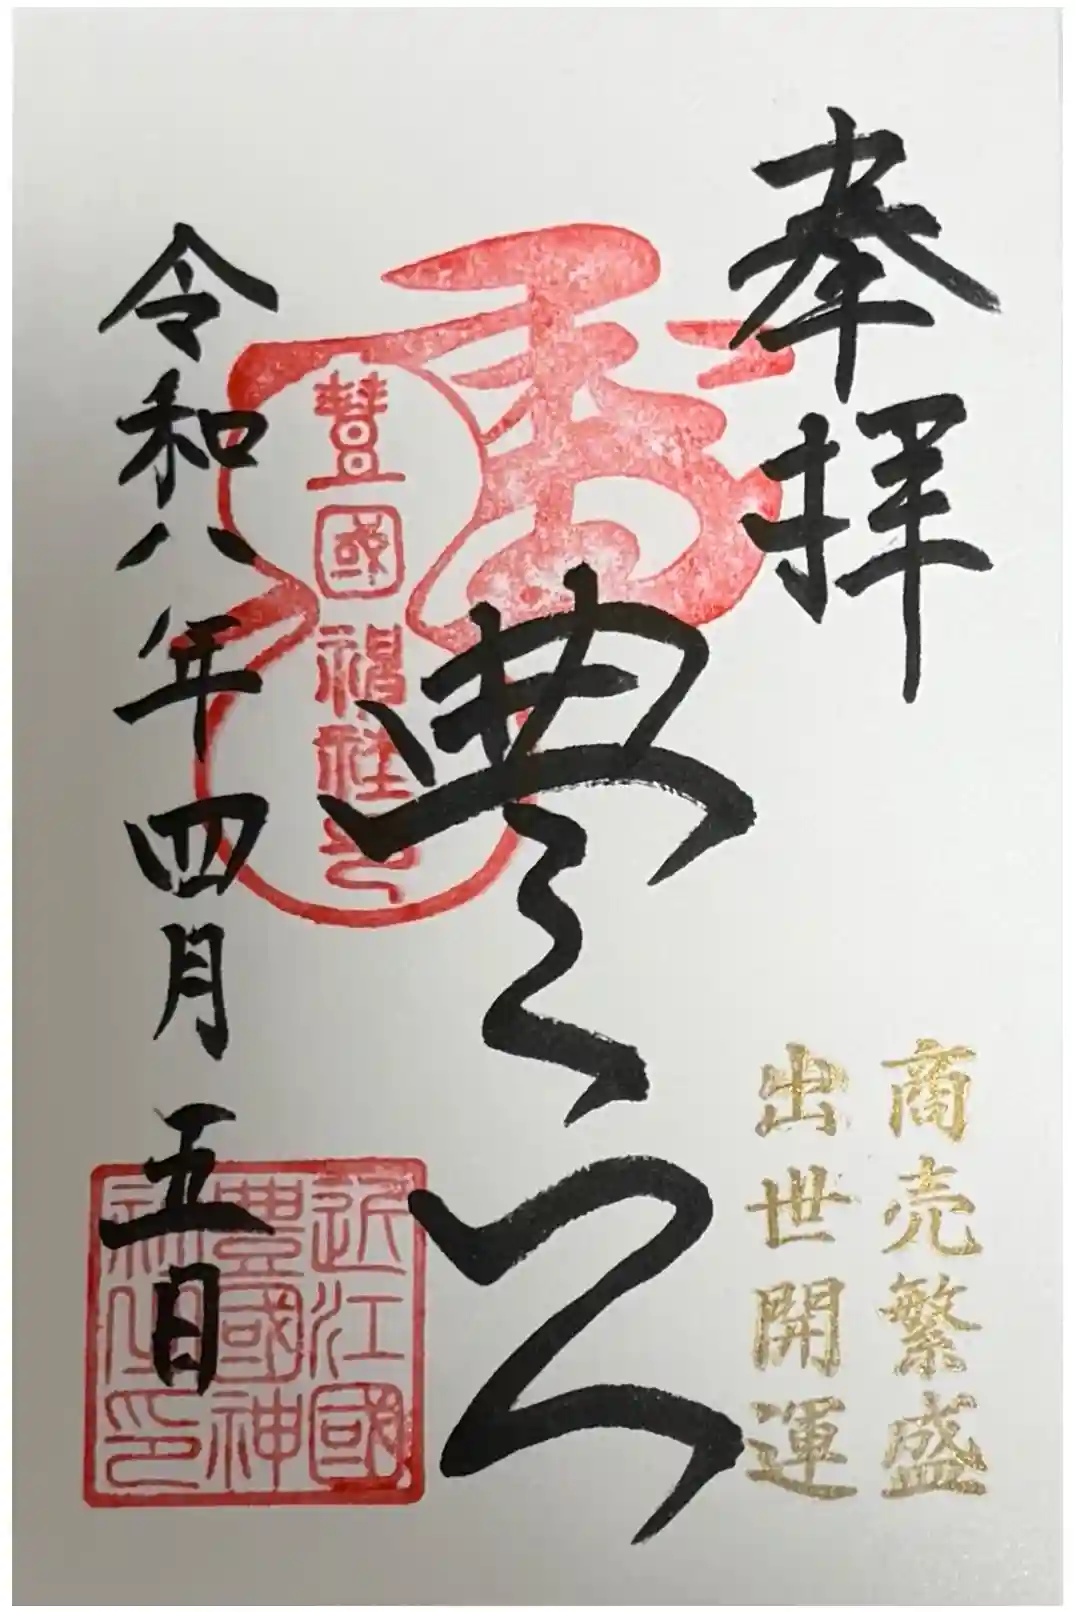 奉拝
商売繁盛
出世開運
豊公
豐國神社印
近江國
豊國神
社印
令和八年四月五日